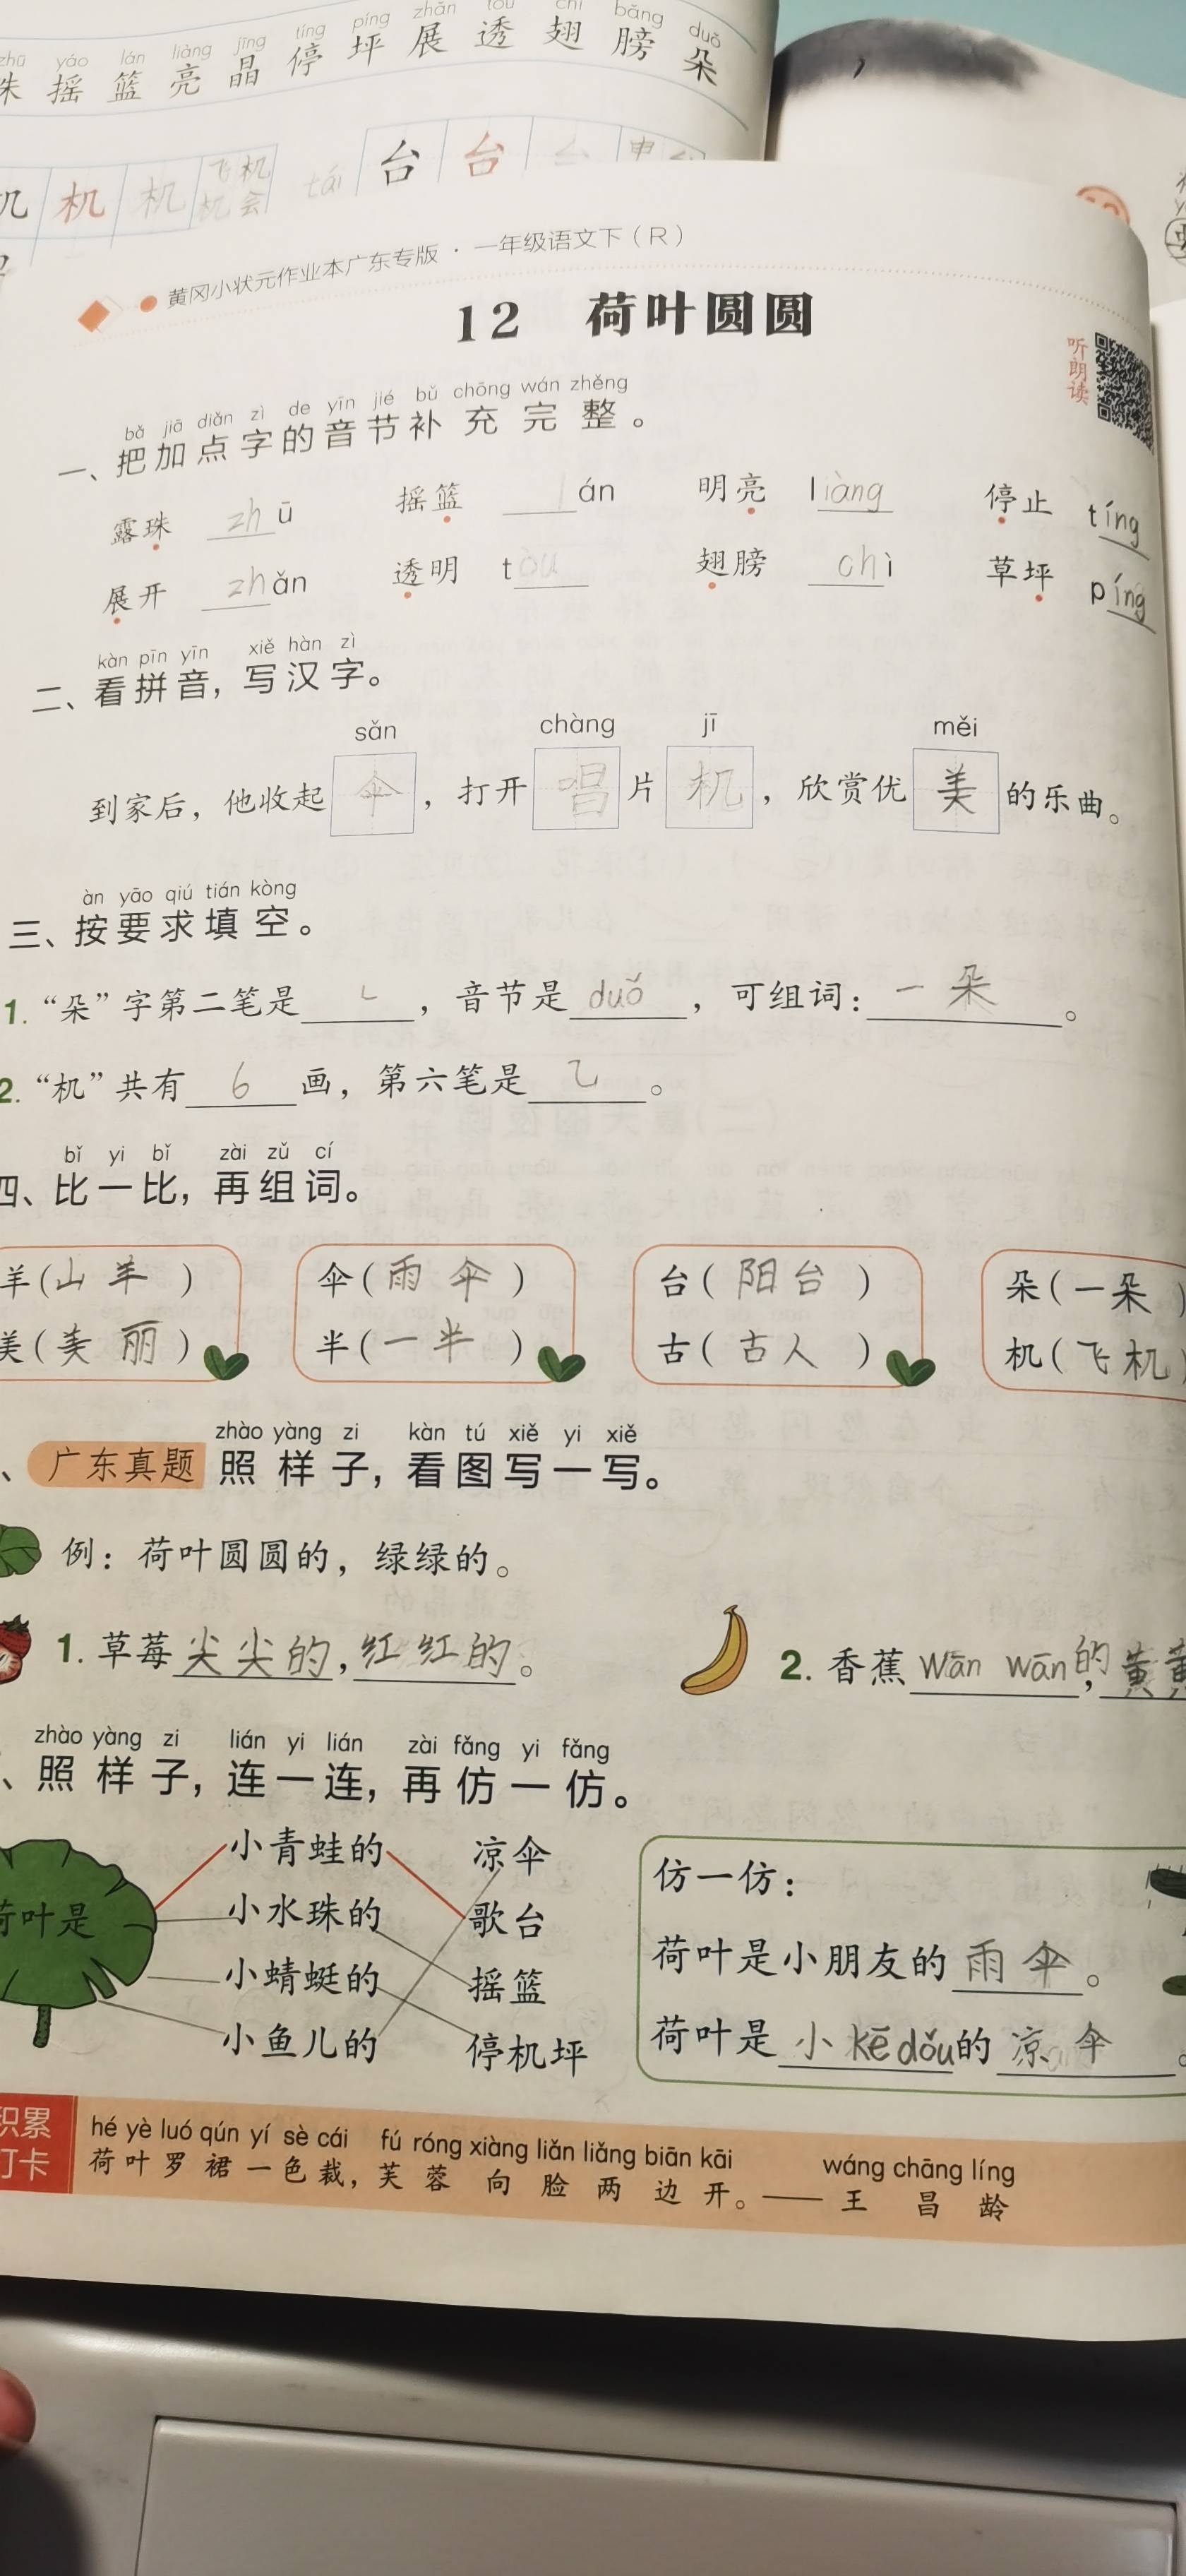 zhū yáo lán liàng jīng tíng píng zhǎn tòu chì bǎng duǒ
珠 摇 篮 亮 晶 停 坪 展 透 翅 膀 朵
机 机 机 飞机 机会 tái 台 台
黄冈小状元作业本广东专版 · 一年级语文下（R）
12 荷叶圆圆
听朗读
bǎ jiā diǎn zì de yīn jié bǔ chōng wán zhěng
一、把加点字的音节补充完整。
露珠 zhū 摇篮 lán 明亮 liàng 停止 tíng
展开 zhǎn 透明 tòu 翅膀 chì 草坪 píng
kàn pīn yīn xiě hàn zì
二、看拼音，写汉字。
sǎn chàng jī měi
到家后，他收起伞，打开唱片机，欣赏优美的乐曲。
àn yāo qiú tián kòng
三、按要求填空。
1.“朵”字第二笔是 ㄴ ，音节是 duǒ ，可组词：一朵。
2.“机”共有 6 画，第六笔是 乙 。
bǐ yi bǐ zài zǔ cí
四、比一比，再组词。
羊（山羊） 伞（雨伞） 台（阳台） 朵（一朵）
美（美丽） 半（一半） 古（古人） 机（飞机）
zhào yàng zi kàn tú xiě yi xiě
、广东真题 照样子，看图写一写。
例：荷叶圆圆的，绿绿的。
1. 草莓尖尖的，红红的。 2. 香蕉wān wān的，黄黄
zhào yàng zi lián yi lián zài fǎng yi fǎng
、照样子，连一连，再仿一仿。
荷叶是
小青蛙的 凉伞
小水珠的 歌台
小蜻蜓的 摇篮
小鱼儿的 停机坪
仿一仿：
荷叶是小朋友的 雨伞 。
荷叶是 小kē dǒu的 凉伞 。
积累
打卡
hé yè luó qún yí sè cái fú róng xiàng liǎn liǎng biān kāi wáng chāng líng
荷叶罗裙一色裁，芙蓉向脸两边开。——王昌龄